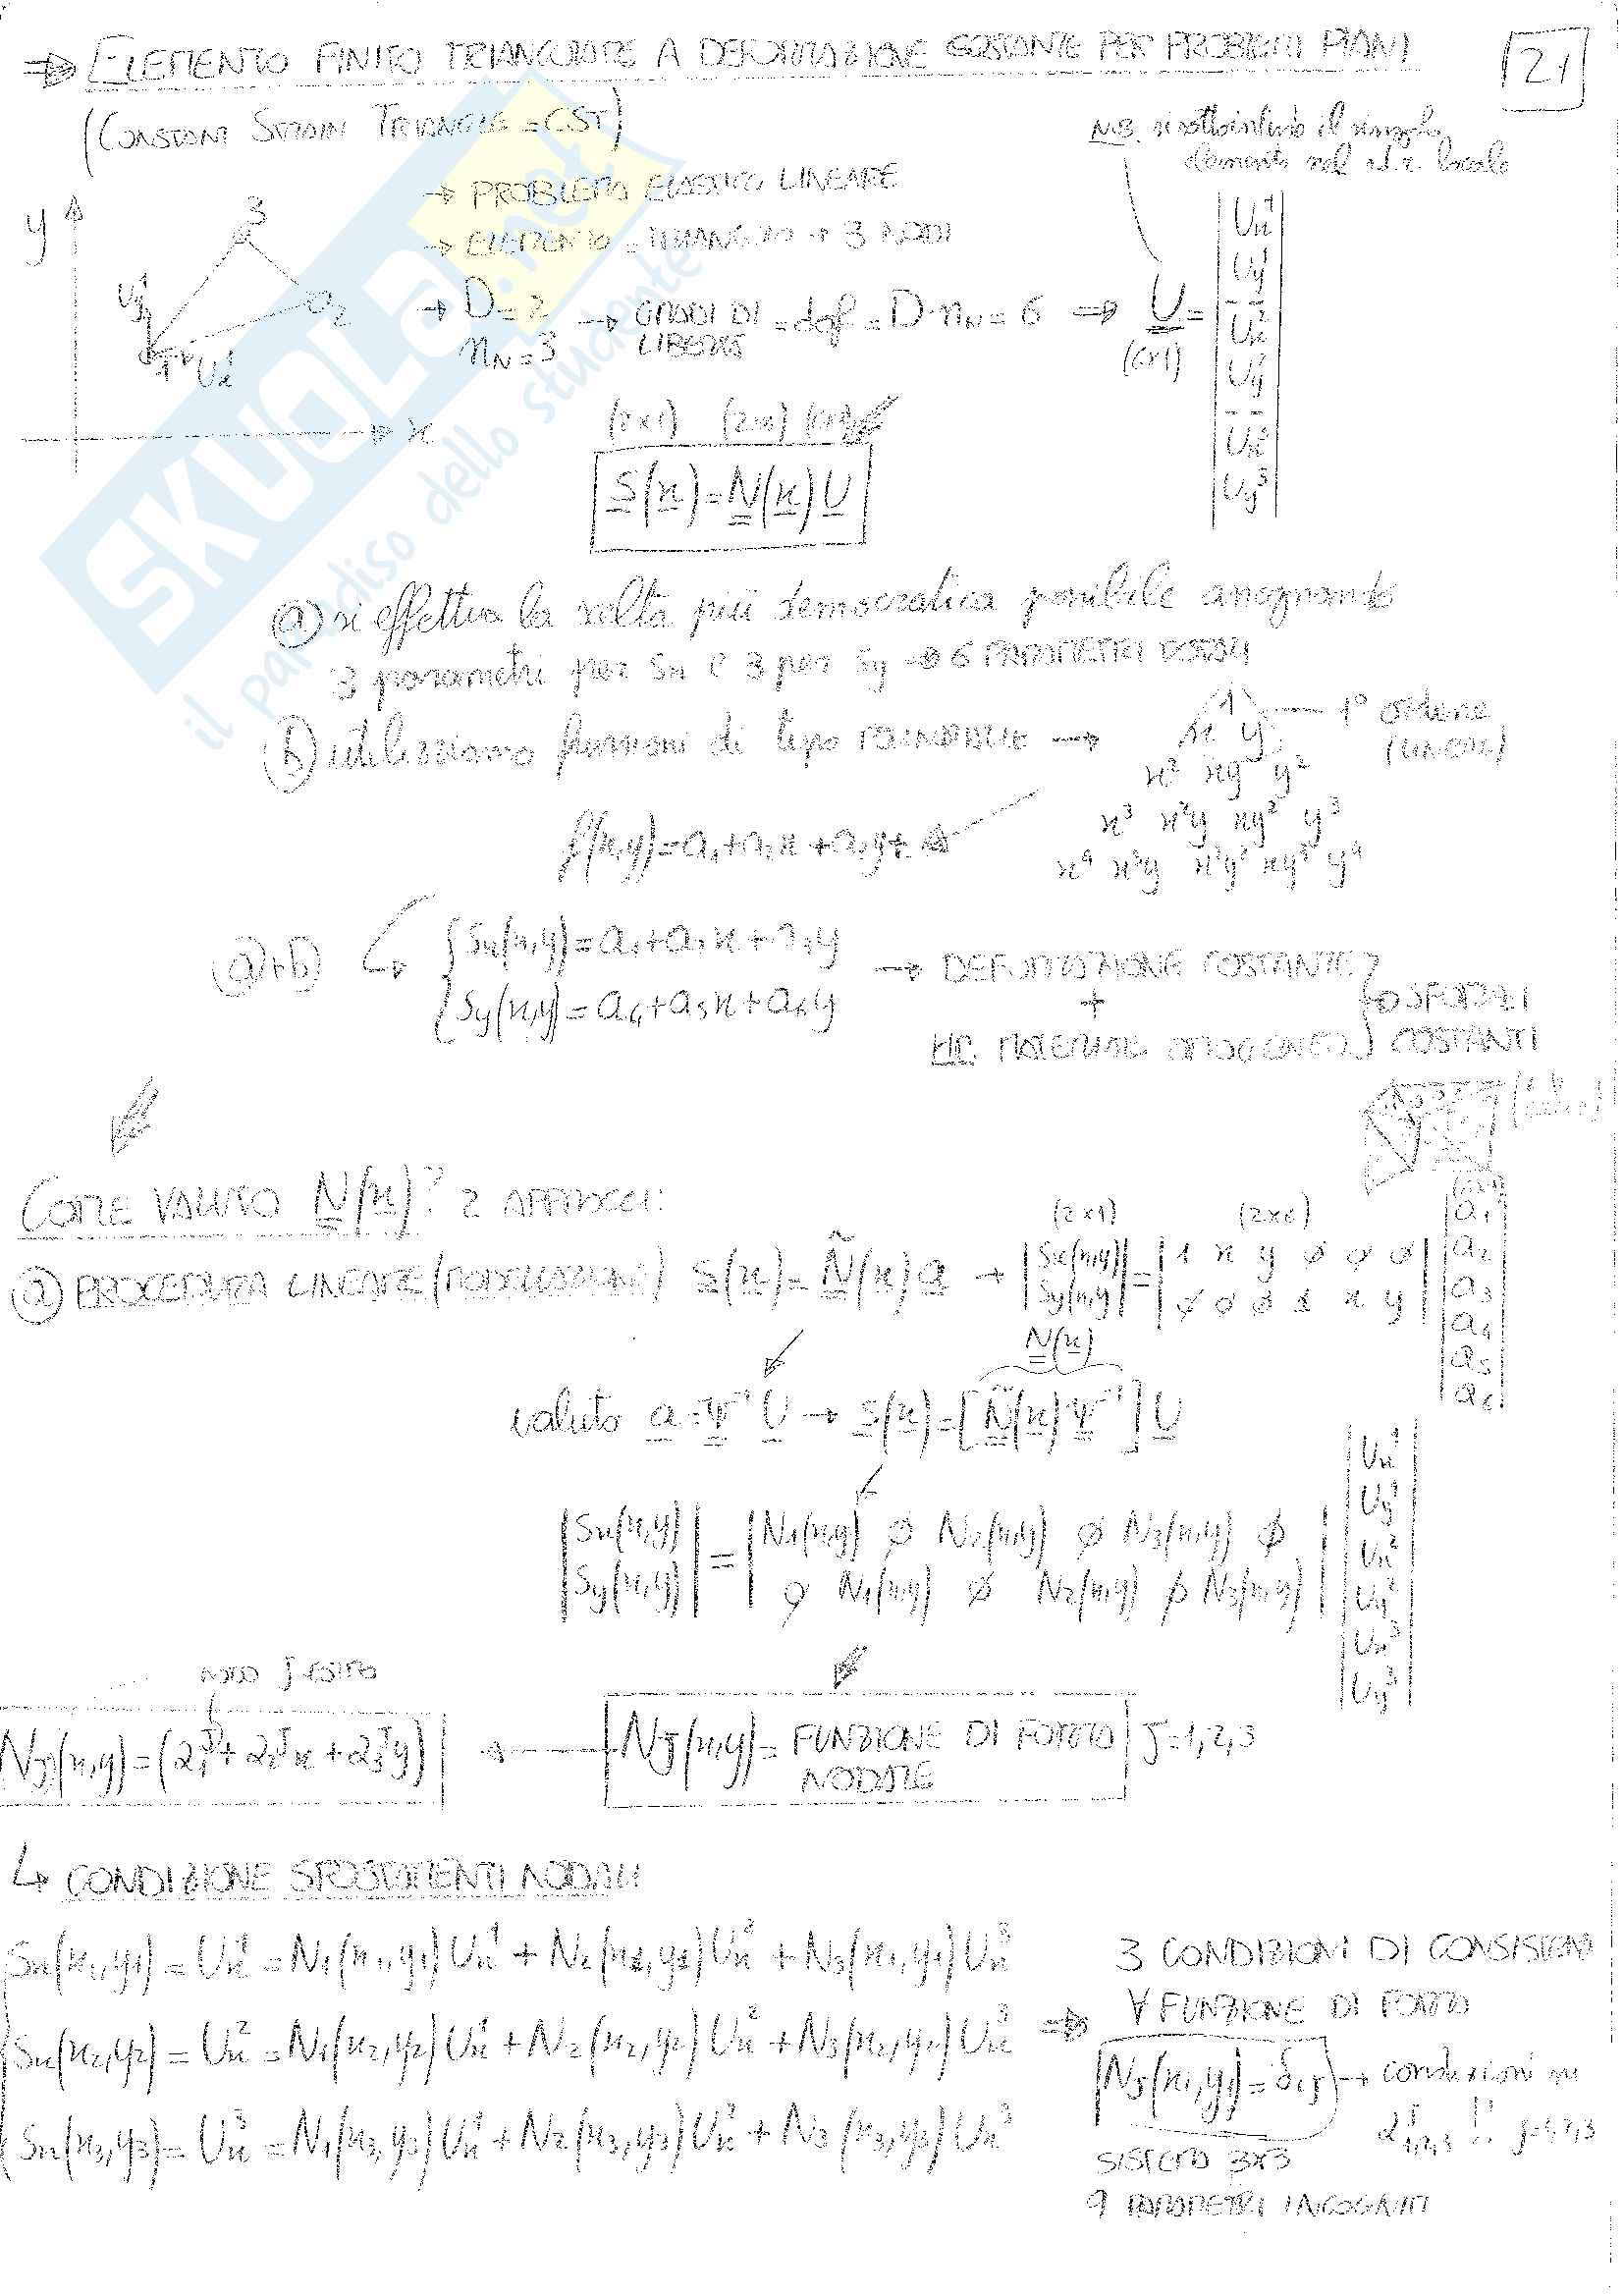 ⇒ ELEMENTO FINITO TRIANGOLARE A DEFORMAZIONE COSTANTE PER PROBLEMI PIANI
21
(CONSTANT STRAIN TRIANGLE = CST)
N.B. si sottointende il singolo
elemento nel s.d.r. locale
→ PROBLEMA ELASTICO LINEARE
→ ELEMENTO = TRIANGOLO → 3 NODI
y 3 2 1 x Uy¹ Ux¹
→ D=2 → GRADI DI LIBERTÀ = dof = D·nN = 6 ⇒ U =
nN=3
(6x1)
Ux¹
Uy¹
Ux²
Uy²
Ux³
Uy³
(2x1) (2x6) (6x1)
S(x) = N(x) U
ⓐ si effettua la scelta più democratica possibile assegnando
3 parametri per Sx e 3 per Sy → 6 PARAMETRI TOTALI
ⓑ utilizziamo funzioni di tipo POLINOMIALE →
1 — 1° ordine
x y (LINEARE)
x² xy y²
x³ x²y xy² y³
x⁴ x³y x²y² xy³ y⁴
f(x,y)=a₁+a₂x+a₃y+
ⓐ+ⓑ
Sx(x,y)=a₁+a₂x+a₃y
Sy(x,y)=a₄+a₅x+a₆y
→ DEFORMAZIONE COSTANTE
+
HP. MATERIALE OMOGENEO
→ SFORZI
COSTANTI
COME VALUTO N(x)? 2 APPROCCI:
ⓐ PROCEDURA LINEARE (MODELLAZIONE) S(x) = Ñ(x) a →
(2x1) (2x6)
|Sx(x,y)| = |1 x y 0 0 0|
|Sy(x,y)| |0 0 0 1 x y|
a₁
a₂
a₃
a₄
a₅
a₆
N(x)
valuto a = Ψ⁻¹ U → S(x) = [Ñ(x) Ψ⁻¹] U
|Sx(x,y)| = |N₁(x,y) 0 N₂(x,y) 0 N₃(x,y) 0|
|Sy(x,y)| |0 N₁(x,y) 0 N₂(x,y) 0 N₃(x,y)|
Ux¹
Uy¹
Ux²
Uy²
Ux³
Uy³
NODO J-ESIMO
NJ(x,y) = (α₁ᴶ + α₂ᴶx + α₃ᴶy)
NJ(x,y) = FUNZIONE DI FORMA J=1,2,3
NODALE
↳ CONDIZIONE SPOSTAMENTI NODALI
Sx(x₁,y₁) = Ux¹ = N₁(x₁,y₁)Ux¹ + N₂(x₁,y₁)Ux² + N₃(x₁,y₁)Ux³
Sx(x₂,y₂) = Ux² = N₁(x₂,y₂)Ux¹ + N₂(x₂,y₂)Ux² + N₃(x₂,y₂)Ux³
Sx(x₃,y₃) = Ux³ = N₁(x₃,y₃)Ux¹ + N₂(x₃,y₃)Ux² + N₃(x₃,y₃)Ux³
⇒ 3 CONDIZIONI DI CONSISTENZA
∀ FUNZIONE DI FORMA
NJ(xi,yi) = δij → condizioni su
αʲ₁,₂,₃ j=1,2,3
SISTEMA 3x3
9 PARAMETRI INCOGNITI
SKUOLA.net
il paradiso dello studente